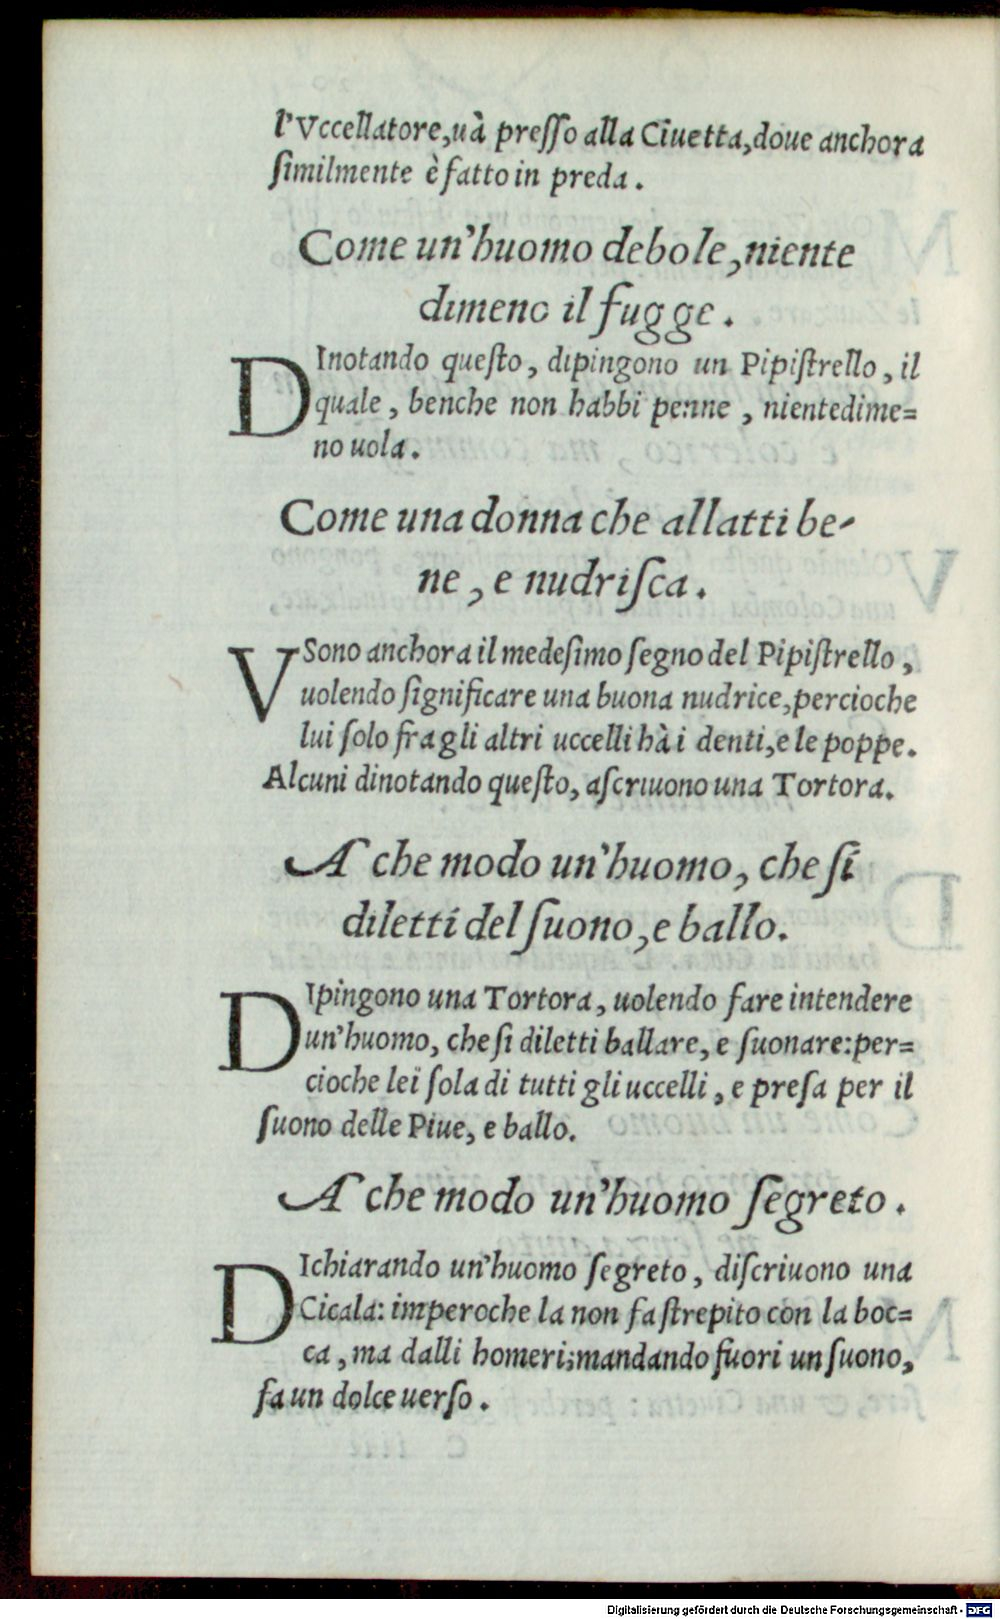 l'Vccellatore,uà preſſo alla Ciuetta,doue anchora
ſimilmente è fatto in preda.
Come un'huomo debole,niente
dimeno il fugge.
DInotando queſto, dipingono un Pipiſtrello, il
quale, benche non habbi penne, nientedime=
no uola.
Come una donna che allatti be-
ne, e nudriſca.
VSono anchora il medeſimo ſegno del Pipiſtrello,
uolendo ſignificare una buona nudrice,percioche
lui ſolo fra gli altri uccelli hà i denti,e le poppe.
Alcuni dinotando queſto, aſcriuono una Tortora.
A che modo un'huomo, che ſi
diletti del ſuono,e ballo.
DIpingono una Tortora, uolendo fare intendere
un'huomo, che ſi diletti ballare, e ſuonare:per=
cioche lei ſola di tutti gli uccelli, e preſa per il
ſuono delle Piue, e ballo.
A che modo un'huomo ſegreto.
DIchiarando un'huomo ſegreto, diſcriuono una
Cicala: imperoche la non fa ſtrepito con la boc=
ca, ma dalli homeri;mandando fuori un ſuono,
fa un dolce uerſo.
Digitalisierung gefördert durch die Deutsche Forschungsgemeinschaft - DFG